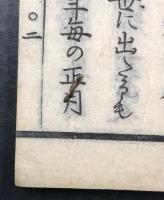 世に出たるも
年毎の正月
〇二